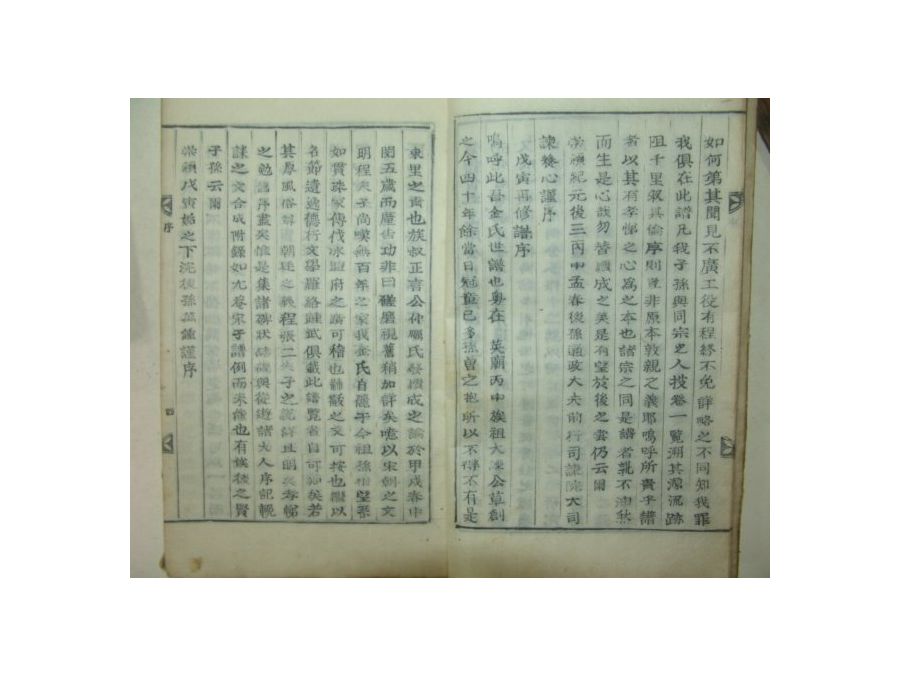 如何第其聞見不廣工役有程終不免詳略之不同知我罪
我俱在此譜凡我子孫與同宗之人投卷一覽溯其源流跡
阻千里叙其倫序則豈非原本敦親之義耶嗚呼所貴乎譜
者以其有孝悌之心為之本也譜宗之同是譜者孰不油然
而生是心哉勿替續成之美是有望於後之雲仍云爾
崇禎紀元後三丙申孟春後孫通政大夫前行司諫院大司
諫 心謹序
戊寅再修譜序
嗚呼此吾金氏世譜也粤在 英廟丙申族祖大諫公草創
之今四十年餘當日冠童已多孫曾之抱所以不得不有是
東里之責也族叔正言公仲 氏發續成之論於甲戌春中
閱五歲而 告功非曰磋磨視舊稍加詳矣噫以宋朝之文
明程夫子尚嘆無百年之家我金氏自麗乎今祖孫相望
如貫珠家傳代 之 可稽也 之文可按也 以
名節遺逸德行文學羅絡 武俱載此譜覽者自可知矣若
其 風俗 朝廷之義程張二夫子之說詳且明矣孝悌
之勉譜序盡矣惟是集諸碑狀 與從遊諸大人序記輓
誄之文合成附錄如尤菴宋子譜例而未能也有俟後之賢
子孫云爾
崇禎戊寅 之下浣後孫萬鍾謹序
序
四